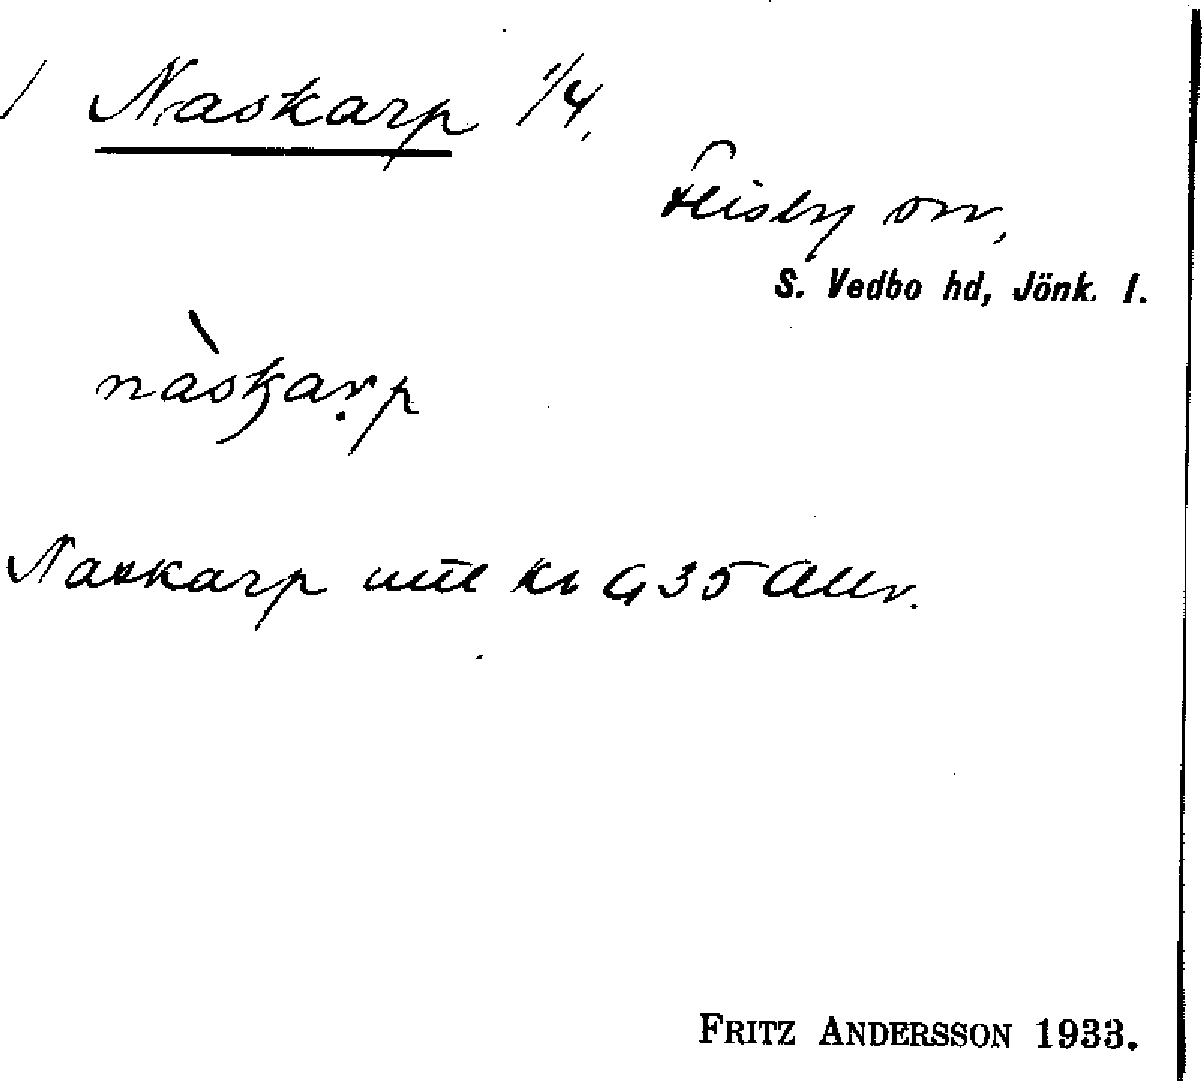 / Naskarp 1/4.
Flisby sn,
S. Vedbo hd, Jönk. l.
nàskarp
Naskarp utl kr G 35
FRITZ ANDERSSON 1933.